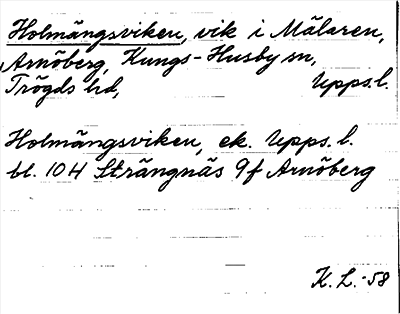 Holmängsviken, vik i Mälaren,
Arnöberg, Kungs-Husby sn,
Trögds hd, Upps.l.
Holmängsviken, ek. Upps. l.
bl. 104 Strängnäs 9f Arnöberg
K.L.-58